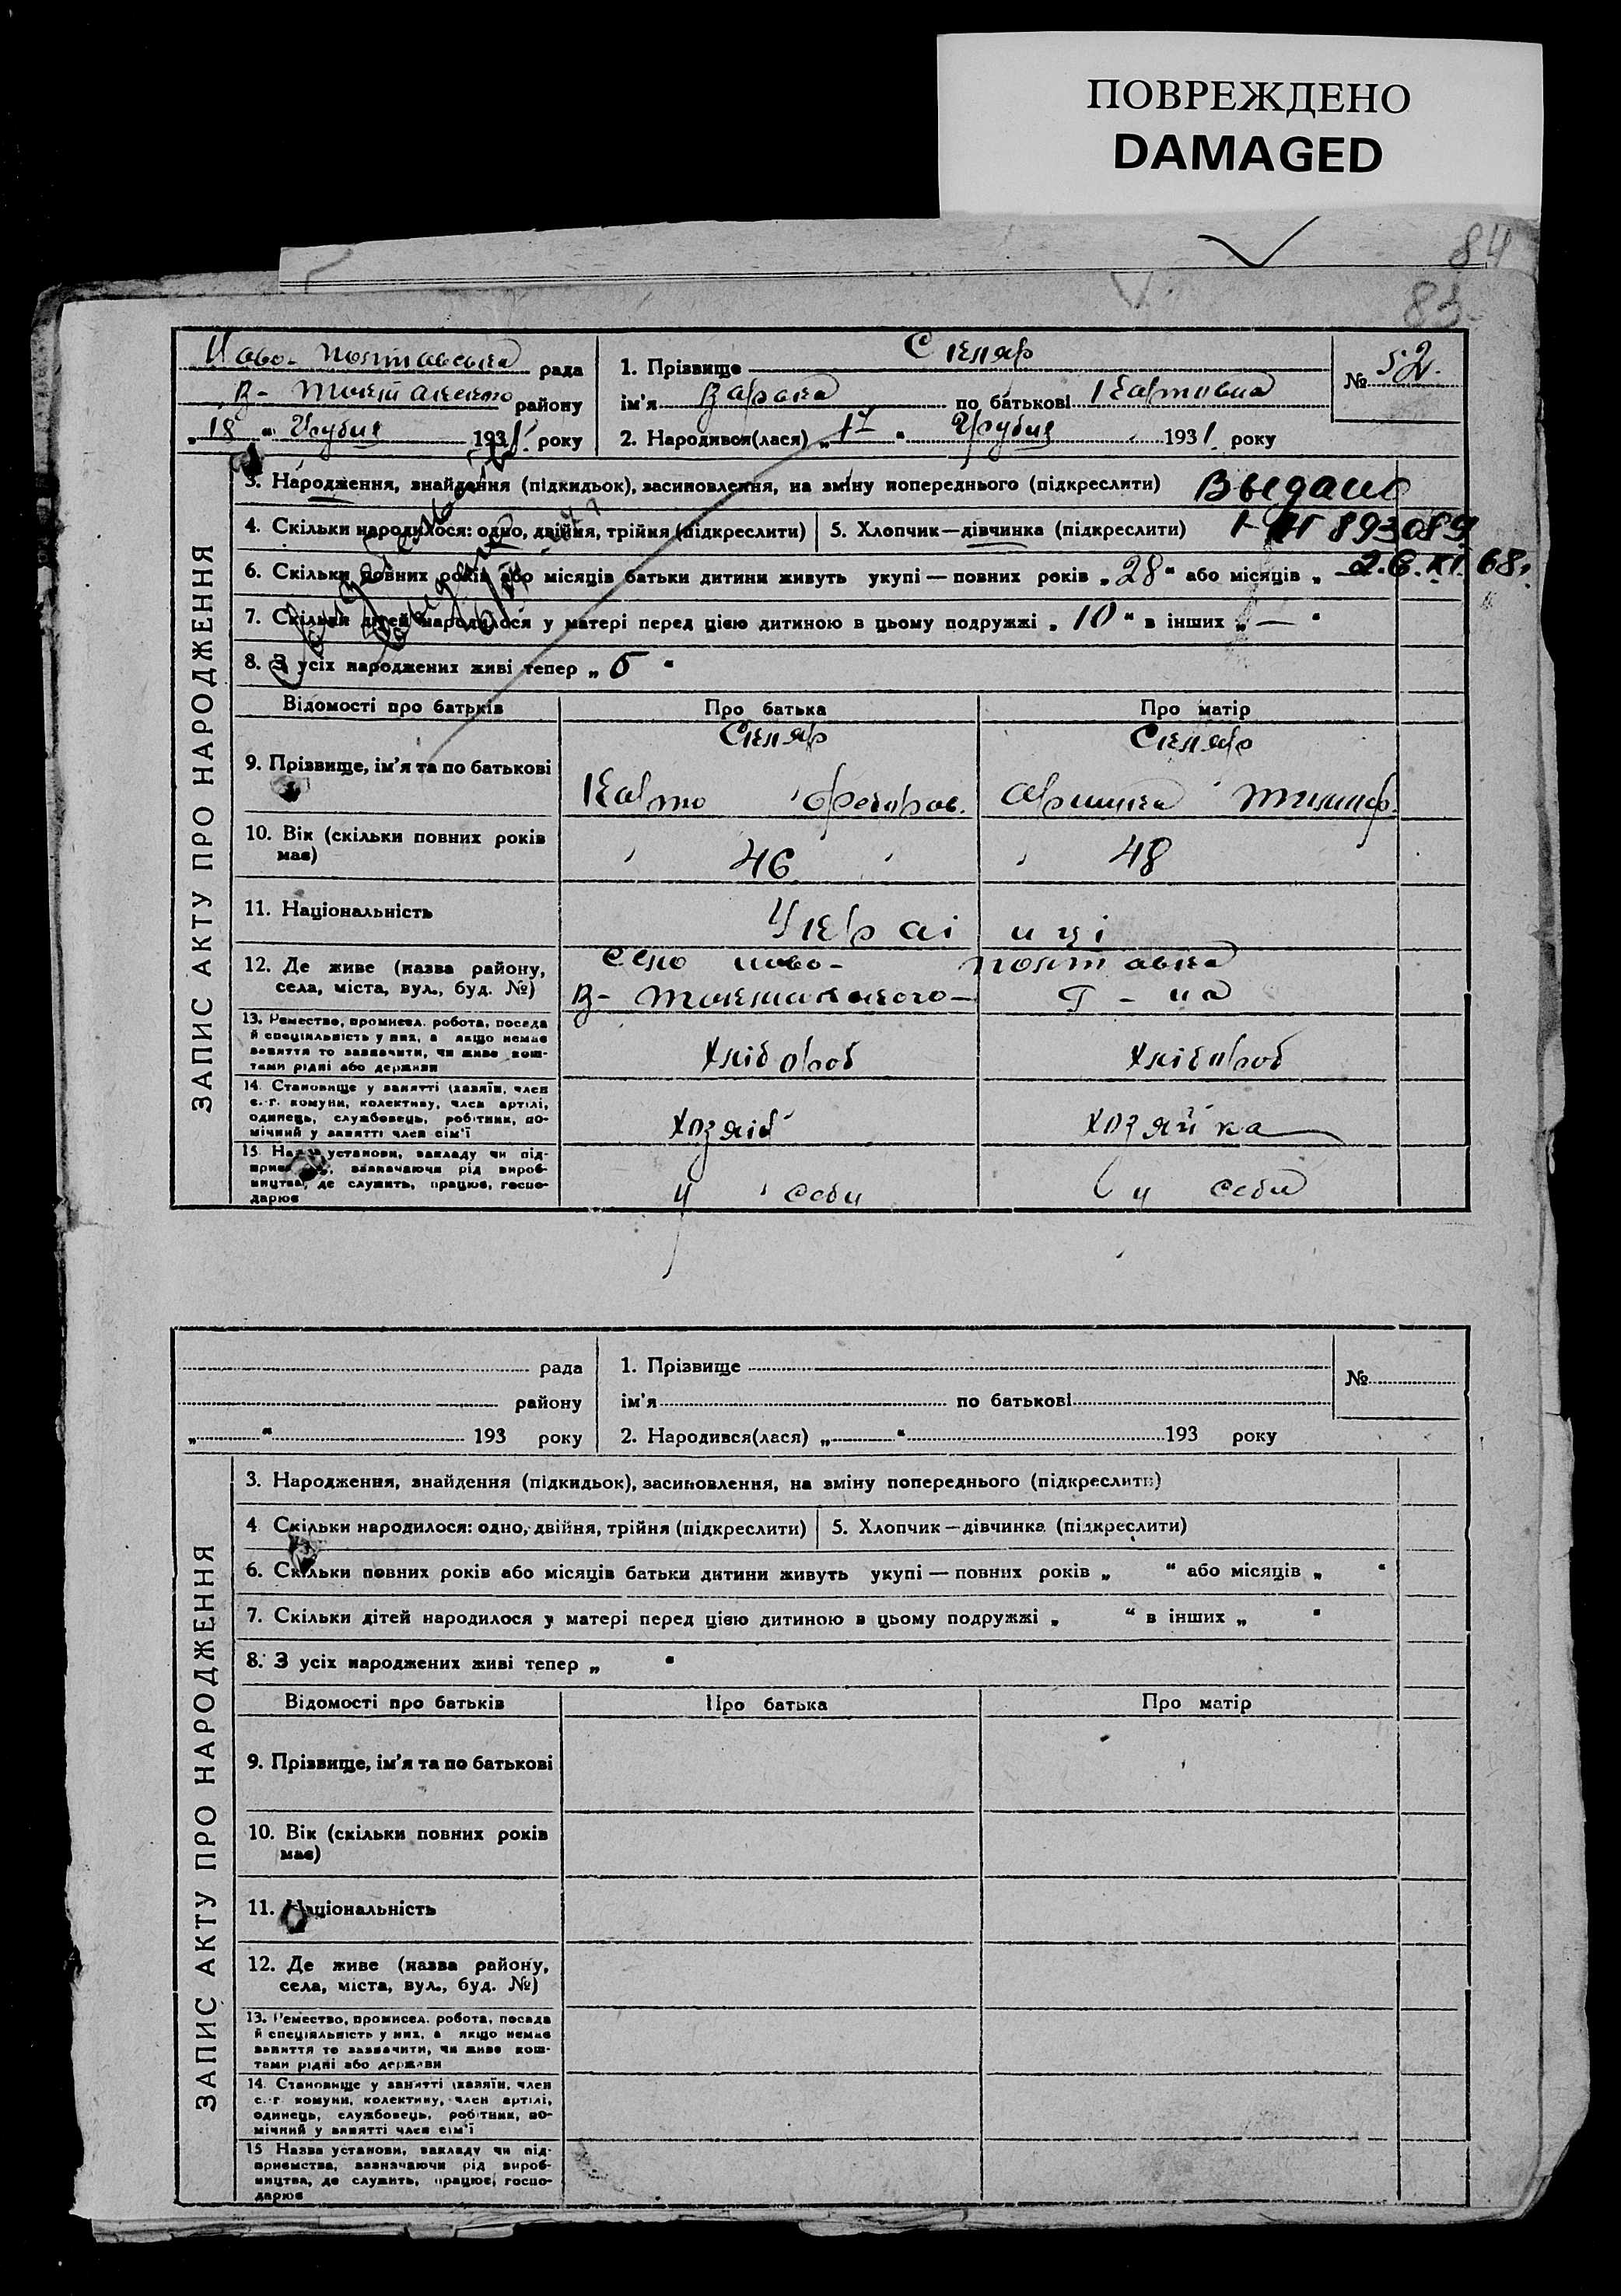 ПОВРЕЖДЕНО
DAMAGED
84
83
Ново-Полтавська рада
В-Токмакського району
„18“ Грудня 1931 року
1. Прізвище Скляр
ім'я Варвка по батькові Карповна
2. Народився(лася) „17“ Грудня 1931 року
№ 52.
ЗАПИС АКТУ ПРО НАРОДЖЕННЯ
3. Народження, знайдення (підкидьок), засиновлення, на зміну попереднього (підкреслити) Выдано
4. Скільки народилося: одно, двійня, трійня (підкреслити) 5. Хлопчик—дівчинка (підкреслити) 893089
6. Скільки повних років або місяців батьки дитини живуть укупі — повних років „28“ або місяців „ — 68.
7. Скільки дітей народилося у матері перед цією дитиною в цьому подружжі „10“ в інших „—“
8. З усіх народжених живі тепер „5“
Відомості про батьків Про батька Про матір
9. Прізвище, ім'я та по батькові
Скляр Скляр
Карпо Федоров.
10. Вік (скільки повних років має)
46 48
11. Національність
Украі нці
12. Де живе (назва району, села, міста, вул., буд. №)
село ново- полтавка
В-Токмакського р-на
13. Ремество, промисел. робота, посада
й спеціяльність у них, а якщо немає
заняття то зазначити, чи живе кош-
тами рідні або держави
Хлібороб Хлібороб
14. Становище у занятті (хазяїн, член
с.-г. комуни, колективу, член артілі,
одинець, службовець, робітник, по-
мічний у занятті член сім'ї
хозяїн хозяйка
15. Назва установи, закладу чи під-
приємства, зазначаючи рід вироб-
ництва, де служить, працює, госпо-
дарює
у себи у себи
рада
району
„ “ 193 року
1. Прізвище
ім'я по батькові
2. Народився(лася) „ “ 193 року
№
ЗАПИС АКТУ ПРО НАРОДЖЕННЯ
3. Народження, знайдення (підкидьок), засиновлення, на зміну попереднього (підкреслити)
4. Скільки народилося: одно, двійня, трійня (підкреслити) 5. Хлопчик—дівчинка (підкреслити)
6. Скільки повних років або місяців батьки дитини живуть укупі — повних років „ “ або місяців „ “
7. Скільки дітей народилося у матері перед цією дитиною в цьому подружжі „ “ в інших „ “
8. З усіх народжених живі тепер „ “
Відомості про батьків Про батька Про матір
9. Прізвище, ім'я та по батькові
10. Вік (скільки повних років
має)
11. Національність
12. Де живе (назва району,
села, міста, вул., буд. №)
13. Ремество, промисел. робота, посада
й спеціяльність у них, а якщо немає
заняття то зазначити, чи живе кош-
тами рідні або держави
14. Становище у занятті (хазяїн, член
с.-г. комуни, колективу, член артілі,
одинець, службовець, робітник, по-
мічний у занятті член сім'ї
15 Назва установи, закладу чи під-
приємства, зазначаючи рід вироб-
ництва, де служить, працює, госпо-
дарює